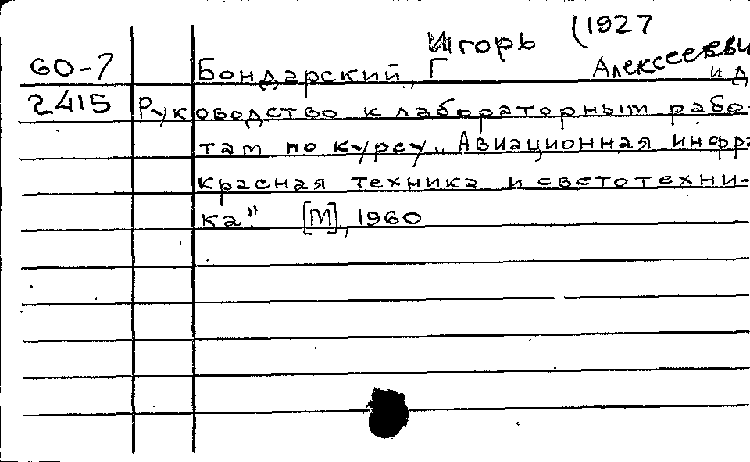 Игорь (1927
60-7 Бондарский, Г Алексееви и д
2415 Руководство к лабораторным рабо-
там по курсу „Авиационная инфра
красная техника и светотехни-
ка" [М], 1960